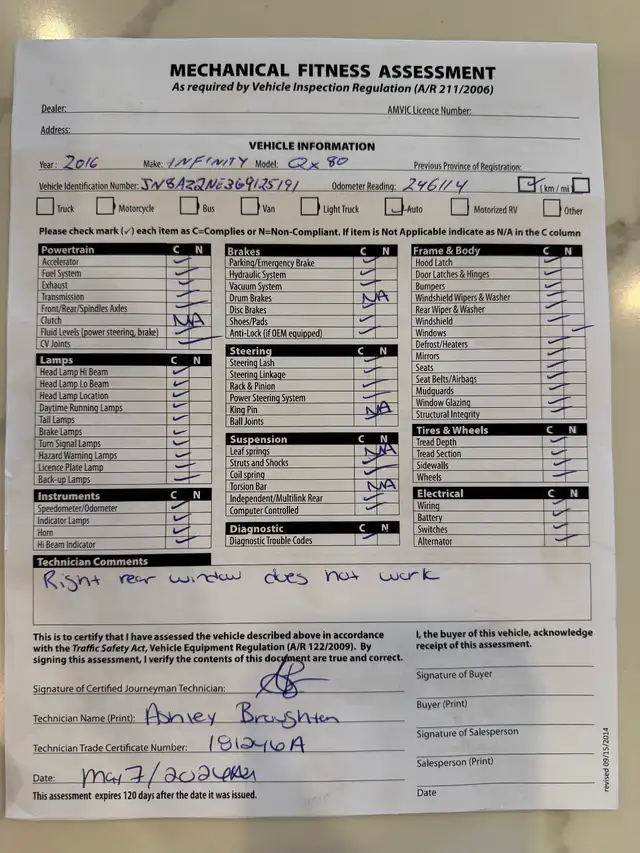 MECHANICAL FITNESS ASSESSMENT
As required by Vehicle Inspection Regulation (A/R 211/2006)
Dealer: AMVIC Licence Number:
Address:
VEHICLE INFORMATION
Year: 2016 Make: INFINITY Model: Qx 80 Previous Province of Registration:
Vehicle Identification Number: JN8AZ2NE3G9125191 Odometer Reading: 246114 ✓ (km / mi)
Truck Motorcycle Bus Van Light Truck ✓ Auto Motorized RV Other
Please check mark (✓) each item as C=Complies or N=Non-Compliant. If item is Not Applicable indicate as N/A in the C column
Powertrain C N
Accelerator ✓
Fuel System ✓
Exhaust ✓
Transmission ✓
Front/Rear/Spindles Axles ✓
Clutch NA
Fluid Levels (power steering, brake) ✓
CV Joints ✓
Lamps C N
Head Lamp Hi Beam ✓
Head Lamp Lo Beam ✓
Head Lamp Location ✓
Daytime Running Lamps ✓
Tail Lamps ✓
Brake Lamps ✓
Turn Signal Lamps ✓
Hazard Warning Lamps ✓
Licence Plate Lamp ✓
Back-up Lamps ✓
Instruments C N
Speedometer/Odometer ✓
Indicator Lamps ✓
Horn ✓
Hi Beam Indicator ✓
Brakes C N
Parking/Emergency Brake ✓
Hydraulic System ✓
Vacuum System ✓
Drum Brakes NA
Disc Brakes ✓
Shoes/Pads ✓
Anti-Lock (if OEM equipped) ✓
Steering C N
Steering Lash ✓
Steering Linkage ✓
Rack & Pinion ✓
Power Steering System ✓
King Pin NA
Ball Joints ✓
Suspension C N
Leaf springs NA
Struts and Shocks ✓
Coil spring ✓
Torsion Bar NA
Independent/Multilink Rear ✓
Computer Controlled ✓
Diagnostic C N
Diagnostic Trouble Codes ✓
Frame & Body C N
Hood Latch ✓
Door Latches & Hinges ✓
Bumpers ✓
Windshield Wipers & Washer ✓
Rear Wiper & Washer ✓
Windshield ✓
Windows ✓
Defrost/Heaters ✓
Mirrors ✓
Seats ✓
Seat Belts/Airbags ✓
Mudguards ✓
Window Glazing ✓
Structural Integrity ✓
Tires & Wheels C N
Tread Depth ✓
Tread Section ✓
Sidewalls ✓
Wheels ✓
Electrical C N
Wiring ✓
Battery ✓
Switches ✓
Alternator ✓
Technician Comments
Right rear window does not work
This is to certify that I have assessed the vehicle described above in accordance
with the Traffic Safety Act, Vehicle Equipment Regulation (A/R 122/2009). By
signing this assessment, I verify the contents of this document are true and correct.
Signature of Certified Journeyman Technician:
Technician Name (Print): Ashley Broughten
Technician Trade Certificate Number: 181246A
Date: May 7/2026
This assessment expires 120 days after the date it was issued.
I, the buyer of this vehicle, acknowledge
receipt of this assessment.
Signature of Buyer
Buyer (Print)
Signature of Salesperson
Salesperson (Print)
Date
revised 09/15/2014